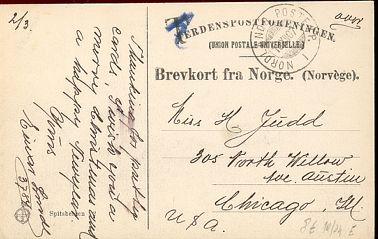 2/3
over
VERDENSPOSTFORENINGEN.
(UNION POSTALE UNIVERSELLE.)
Brevkort fra Norge. (Norvège).
Thanking for pretty
cards, I wish you a
merry Christmas and
a happy Newyear
Yours
Einar
Miss H. Judd
305 North Willow
Ave. Austin
Chicago, Ill
U.S.A.
Spitsbergen